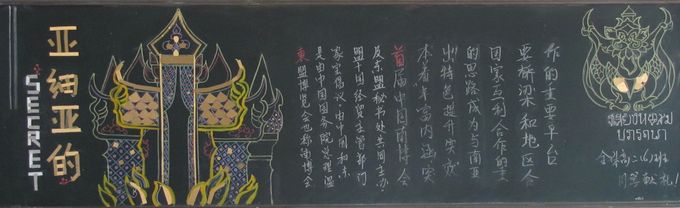 亚细亚的
SECRET
東盟博览会也称南博会
是由中国国务院总理温
家宝倡议,由中国和东
盟十国经贸主管部门
及东盟秘书处共同主办
首届中国南博会
本着丰富内涵突
出特色提升实效
的思路成为与南亚
国家互利合作的重
要桥梁和地区合
作的重要平台
高二(6)班
同学献礼!